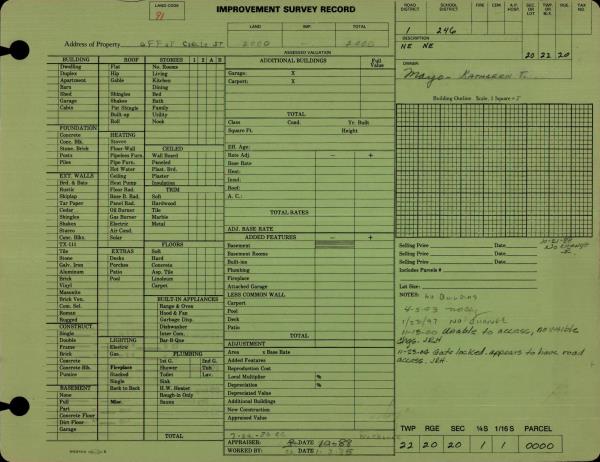 LAND CODE
91
IMPROVEMENT SURVEY RECORD
LAND IMP. TOTAL
2000 2000
Address of Property
ASSESSED VALUATION
ROAD DISTRICT SCHOOL DISTRICT FIRE CEM. A.P. HOSP. SEC OR LOT TWP OR BLK RGE TAX NO.
246
DESCRIPTION
NE NE 20 22 20
OWNER
Mayo- Kathleen T.
Building Outline Scale, 1 Square =
BUILDING
Dwelling
Duplex
Apartment
Barn
Shed
Garage
Cabin
FOUNDATION
Concrete
Conc. Blk.
Stone, Brick
Posts
Piles
EXT. WALLS
Brd. & Bats
Rustic
Shiplap
Tar Paper
Cedar
Shingles
Shakes
Stucco
Conc. Blks
TX-111
Tile
Stone
Galv. Iron
Aluminum
Brick
Vinyl
Masonite
Brick Ven.
Com. Sel.
Roman
Rugged
CONSTRUCT.
Single
Double
Frame
Brick
Concrete
Concrete Blk.
Pumice
BASEMENT
None
Full
Part
Concrete Floor
Dirt Floor
Garage
ROOF
Flat
Hip
Gable
Shingles
Shakes
Pat Shingle
Built-up
Roll
HEATING
Stoves
Floor-Wall
Pipeless Furn.
Pipe Furn.
Hot Water
Ceiling
Heat Pump
Floor Rad.
Base B. Rad.
Panel Rad.
Oil Burner
Gas Burner
Electric
Air Cond.
Solar
EXTRAS
Decks
Porches
Patio
Pool
LIGHTING
Electric
Gas
Fireplace
Stacked
Single
Back to Back
Misc.
STORIES 1 2 A B
No. Rooms
Living
Kitchen
Dining
Bed
Bath
Family
Utility
Nook
CEILED
Wall Board
Paneled
Plast. Brd.
Plaster
Insulation
TRIM
Soft
Hardwood
Tile
Marble
Metal
FLOORS
Soft
Hard
Concrete
Asp. Tile
Linoleum
Carpet
BUILT-IN APPLIANCES
Range & Oven
Hood & Fan
Garbage Disp.
Dishwasher
Inter Com.
Bar-B-Que
PLUMBING
1st G. 2nd G.
Shower Tub
Toilet Lav.
Sink
H.W. Heater
Rough-in Only
Sauna
TOTAL
ADDITIONAL BUILDINGS Full Value
Garage: X
Carport: X
TOTAL
Class Cond. Yr. Built
Square Ft. Height
Eff. Age:
Rate Adj. — +
Base Rate
Heat:
Insul:
Roof:
A. C.:
TOTAL RATES
ADJ. BASE RATE
ADDED FEATURES — +
Basement
Basement Rooms
Built-ins
Plumbing
Fireplace
Attached Garage
LESS COMMON WALL
Carport
Pool
Deck
Patio
TOTAL
ADJUSTMENT
Area x Base Rate
Added Features
Reproduction Cost
Local Multiplier %
Depreciation %
Depreciated Value
Additional Buildings
New Construction
Appraised Value
APPRAISER: DATE 10-88
WORKED BY: DATE
Selling Price Date
Selling Price Date
Selling Price Date
Includes Parcels #
10-21-88
No Change
Lot Size:
NOTES: No Building
4-5-93
1/23/97 No Change
11-15-00 Unable to access, no visible
bldg. JRH
11-25-02 Gate locked. appears to have road
access. JRH
TWP RGE SEC ¼S 1/16 S PARCEL
22 20 20 1 1 0000